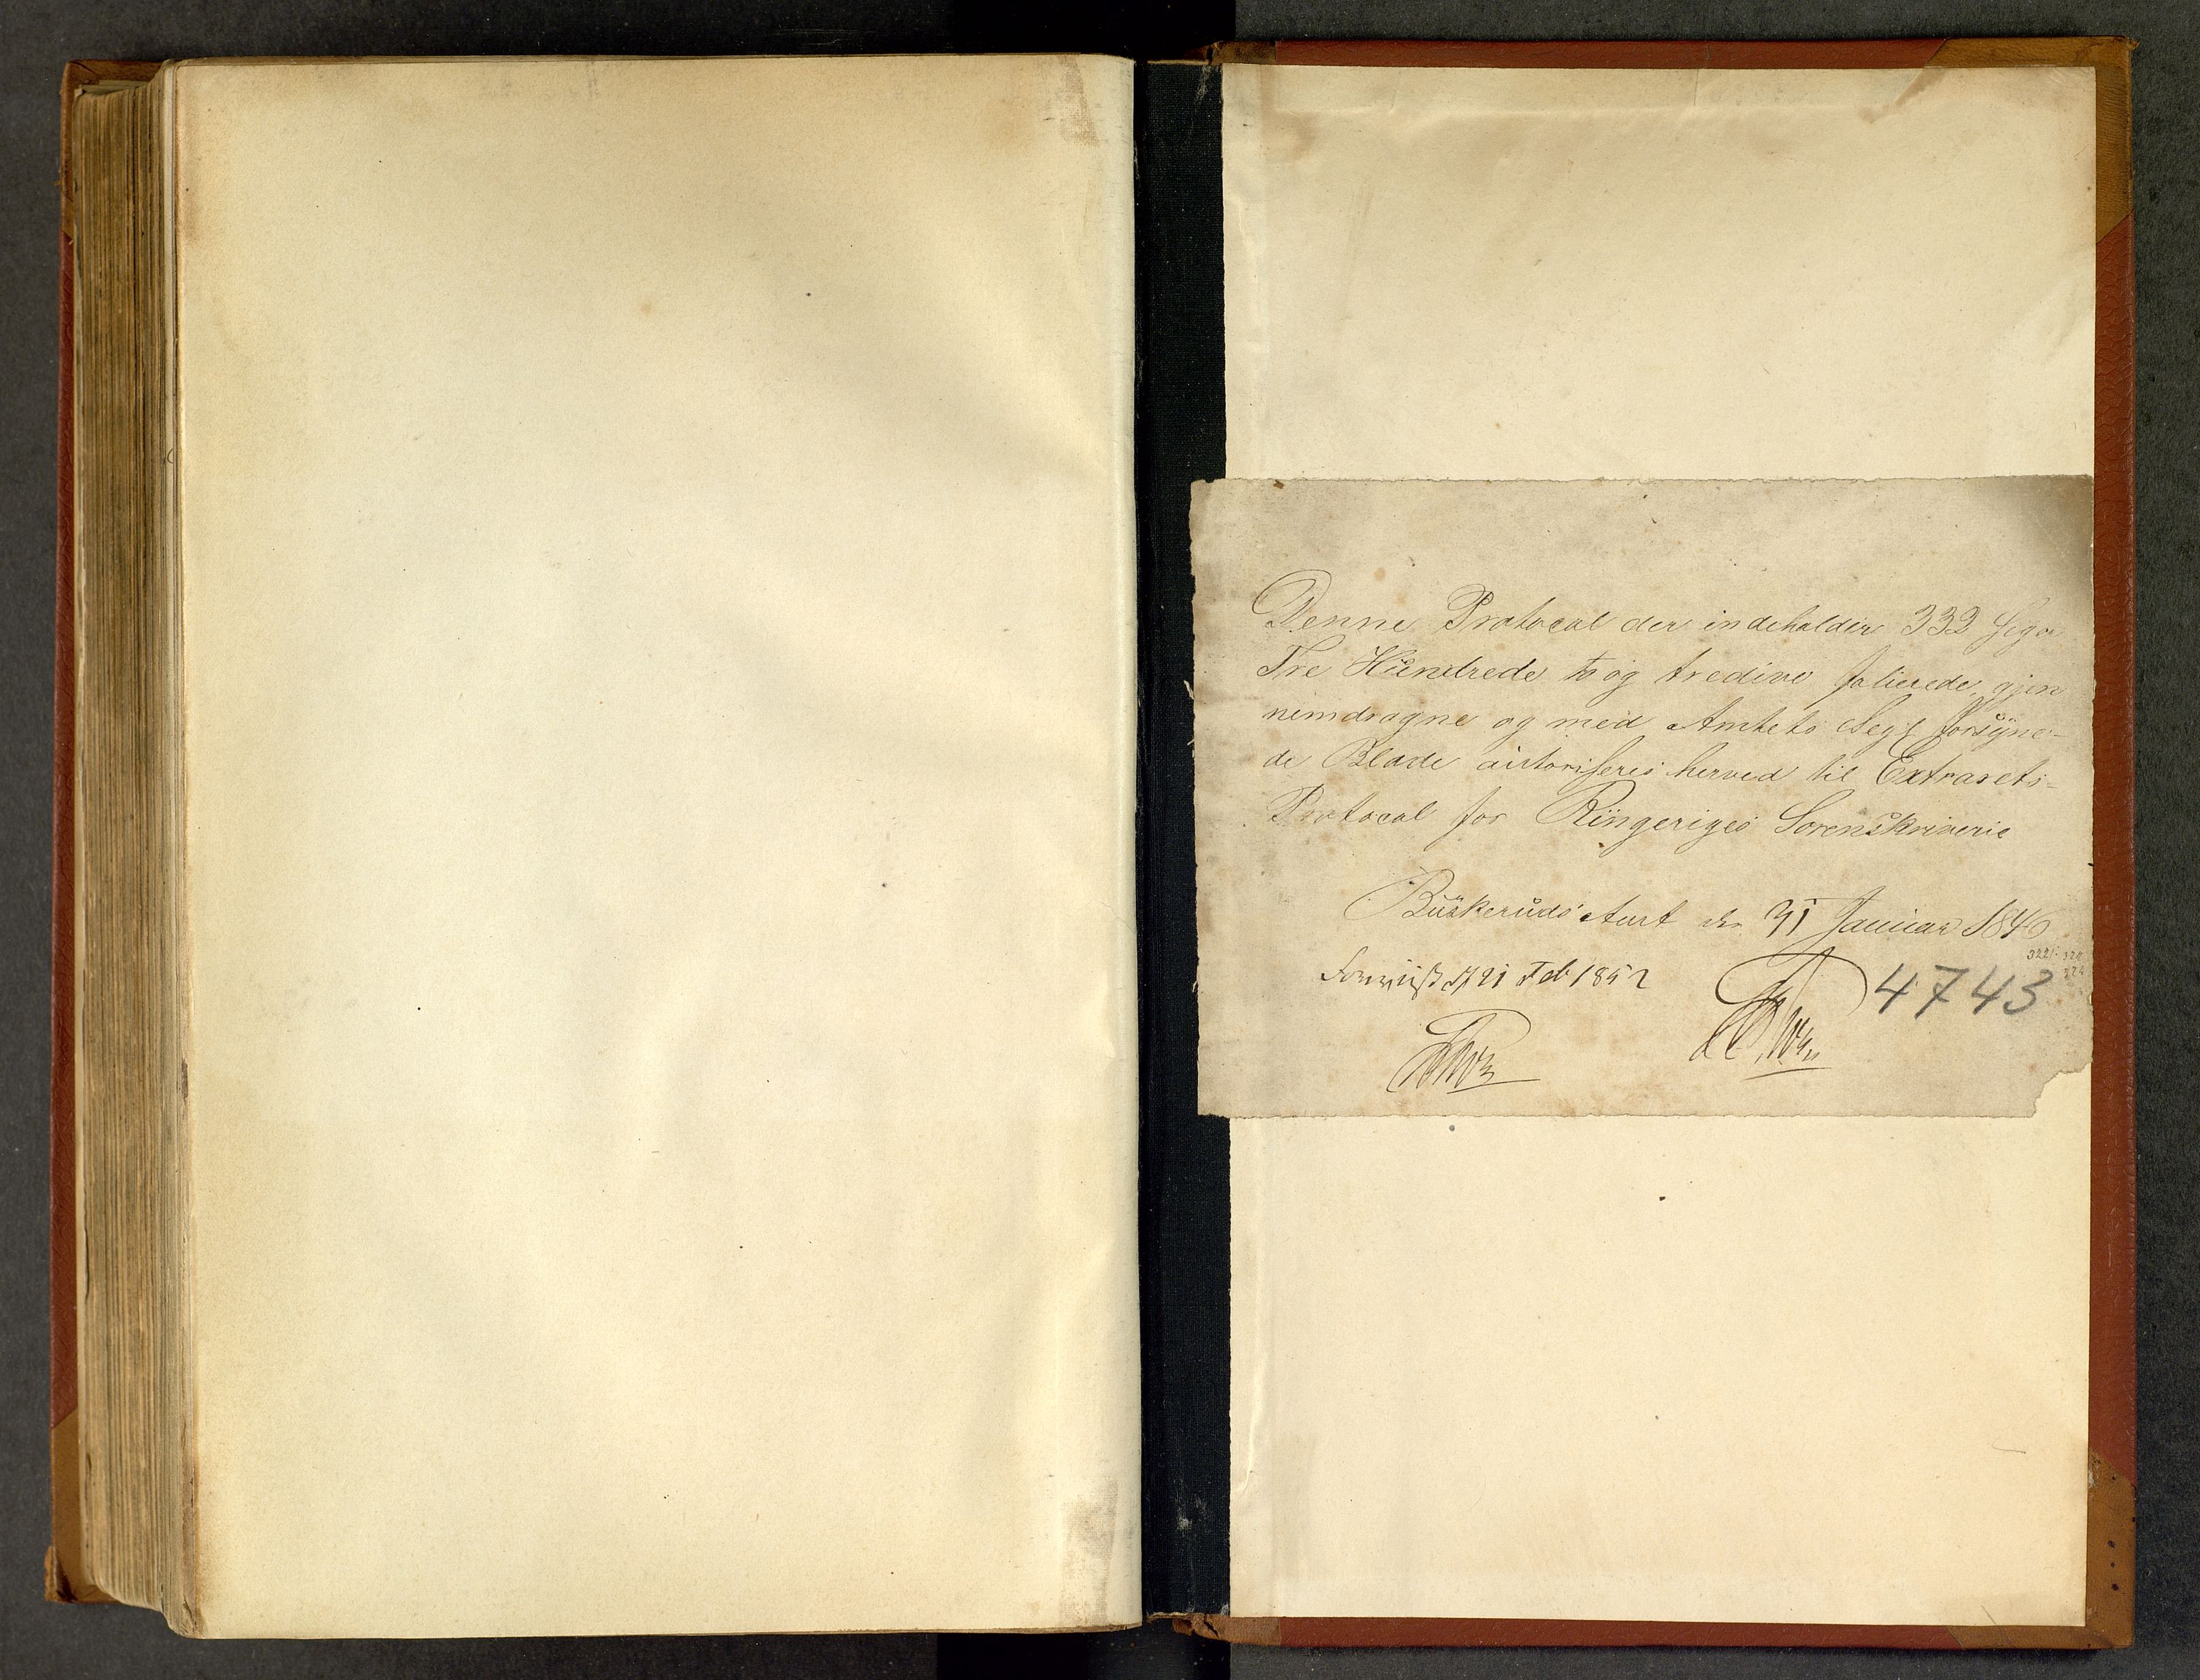 Denne Protocol der indeholder 332 siger
Tre Hundrede to og tredive folierede, gjen
nemdragne og med Amtets Segl forsÿne-
de Blade autoriseres herved til Extrarets-
Protocol for Ringeriges Sorenskriverie
Buskeruds Amt den 31 Januar 1846
21 Feb 1852
4743